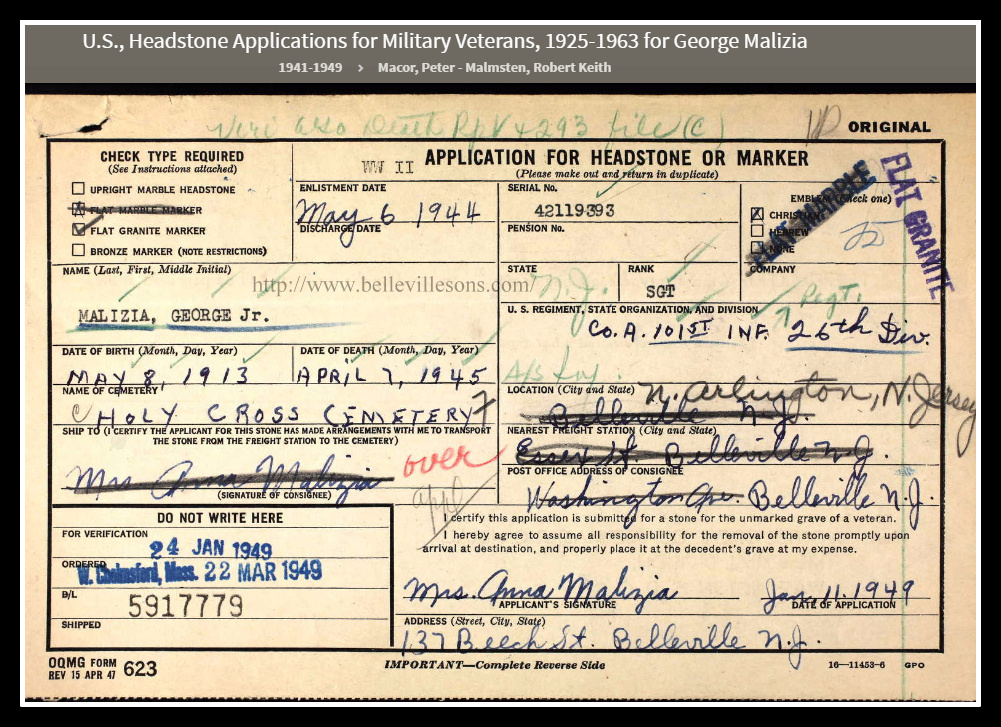 U.S., Headstone Applications for Military Veterans, 1925-1963 for George Malizia
1941-1949 › Macor, Peter - Malmsten, Robert Keith
ORIGINAL
CHECK TYPE REQUIRED
(See Instructions attached)
UPRIGHT MARBLE HEADSTONE
FLAT MARBLE MARKER
FLAT GRANITE MARKER
BRONZE MARKER (NOTE RESTRICTIONS)
WW II
APPLICATION FOR HEADSTONE OR MARKER
(Please make out and return in duplicate)
ENLISTMENT DATE
May 6 1944
DISCHARGE DATE
SERIAL No.
42119393
PENSION No.
EMBLEM (Check one)
CHRISTIAN
HEBREW
NONE
FLAT MARBLE
FLAT GRANITE
NAME (Last, First, Middle Initial)
MALIZIA, GEORGE Jr.
http://www.bellevillesons.com/
STATE
N.J.
RANK
SGT
COMPANY
U. S. REGIMENT, STATE ORGANIZATION, AND DIVISION
Regt.
Co. A. 101ST INF. 26th Div.
DATE OF BIRTH (Month, Day, Year)
MAY 8, 1913
DATE OF DEATH (Month, Day, Year)
APRIL 7, 1945
NAME OF CEMETERY
HOLY CROSS CEMETERY
LOCATION (City and State)
N. Arlington, N. Jersey
Belleville N.J.
SHIP TO (I CERTIFY THE APPLICANT FOR THIS STONE HAS MADE ARRANGEMENTS WITH ME TO TRANSPORT
THE STONE FROM THE FREIGHT STATION TO THE CEMETERY)
Mrs Anna Malizia
(SIGNATURE OF CONSIGNEE)
over
appl
NEAREST FREIGHT STATION (City and State)
Essex St. Belleville N.J.
POST OFFICE ADDRESS OF CONSIGNEE
Washington Ave. Belleville N.J.
I certify this application is submitted for a stone for the unmarked grave of a veteran.
I hereby agree to assume all responsibility for the removal of the stone promptly upon
arrival at destination, and properly place it at the decedent's grave at my expense.
DO NOT WRITE HERE
FOR VERIFICATION
24 JAN 1949
ORDERED
W. Chelmsford, Mass. 22 MAR 1949
B/L
5917779
SHIPPED
Mrs. Anna Malizia
APPLICANT'S SIGNATURE
Jan. 11. 1949
DATE OF APPLICATION
ADDRESS (Street, City, State)
137 Beech St. Belleville N.J.
OQMG FORM
REV 15 APR 47 623
IMPORTANT—Complete Reverse Side
16—11453-6 GPO